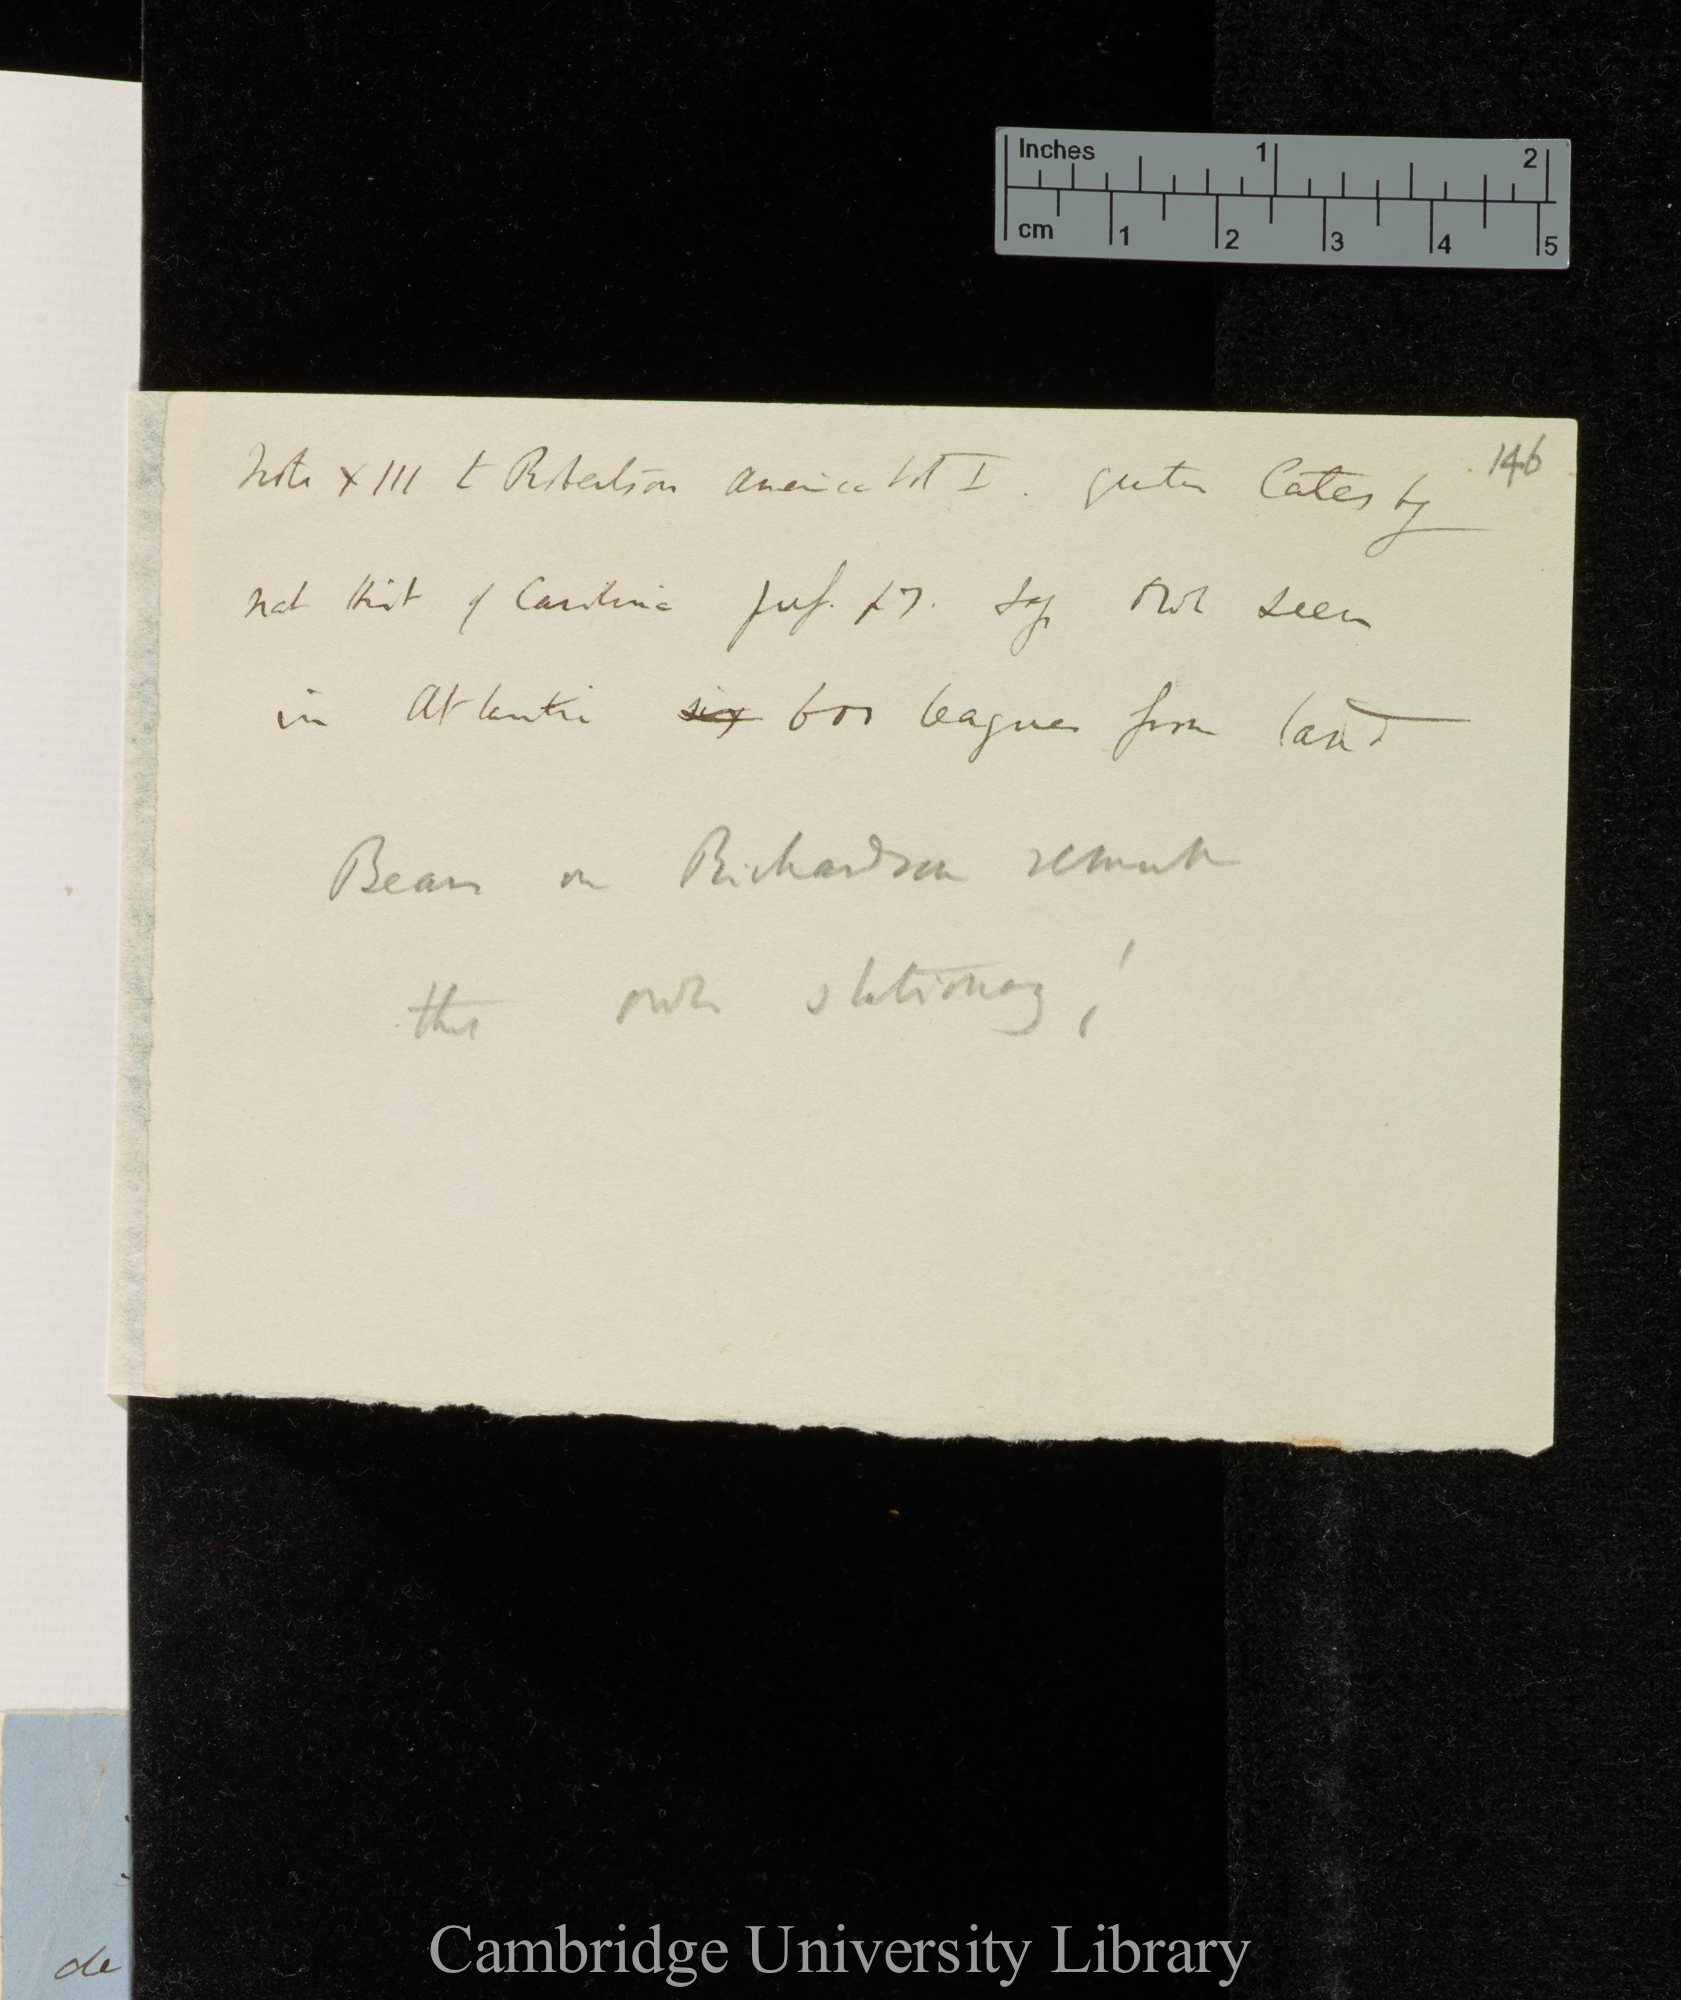 Inches 1 2
cm 1 2 3 4 5
146
Note XIII to Robertson America Vol I. quotes Catesby
Nat Hist of Carolina pref. p 7. says Owl seen
in Atlantic six 600 leagues from land
Bears on Richardson remark
this owl stationary!
Cambridge University Library
de